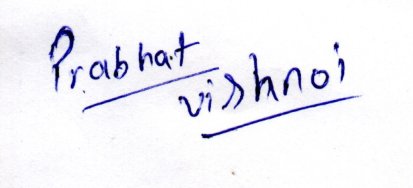 Prabhat
vishnoi